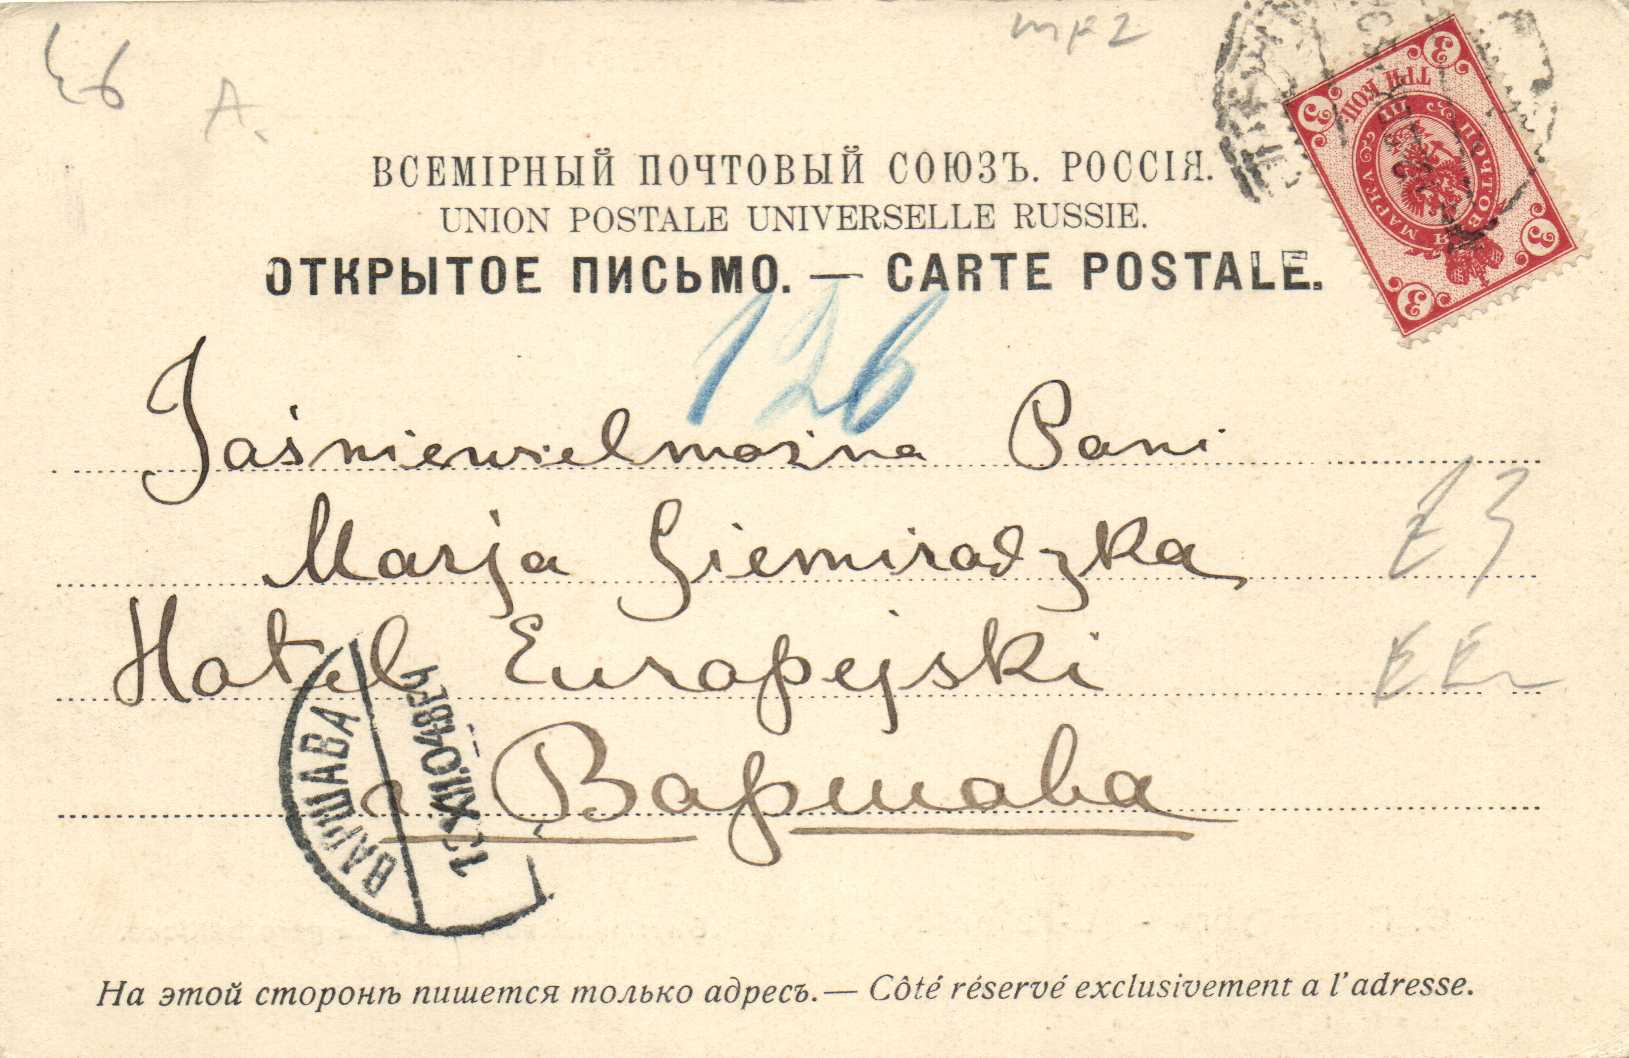 46
A.
мк2
ВСЕМІРНЫЙ ПОЧТОВЫЙ СОЮЗЪ. РОССІЯ.
UNION POSTALE UNIVERSELLE RUSSIE.
ОТКРЫТОЕ ПИСЬМО. — CARTE POSTALE.
3 ТРИ КОП. 3
ПОЧТОВАЯ МАРКА
3 3
126
Jaśniewielmożna Pani
Marja Siemiradzka
Hotel Europejski
г Варшава
ВАРШАВА
XII.04
На этой сторонѣ пишется только адресъ. — Côté réservé exclusivement a l'adresse.